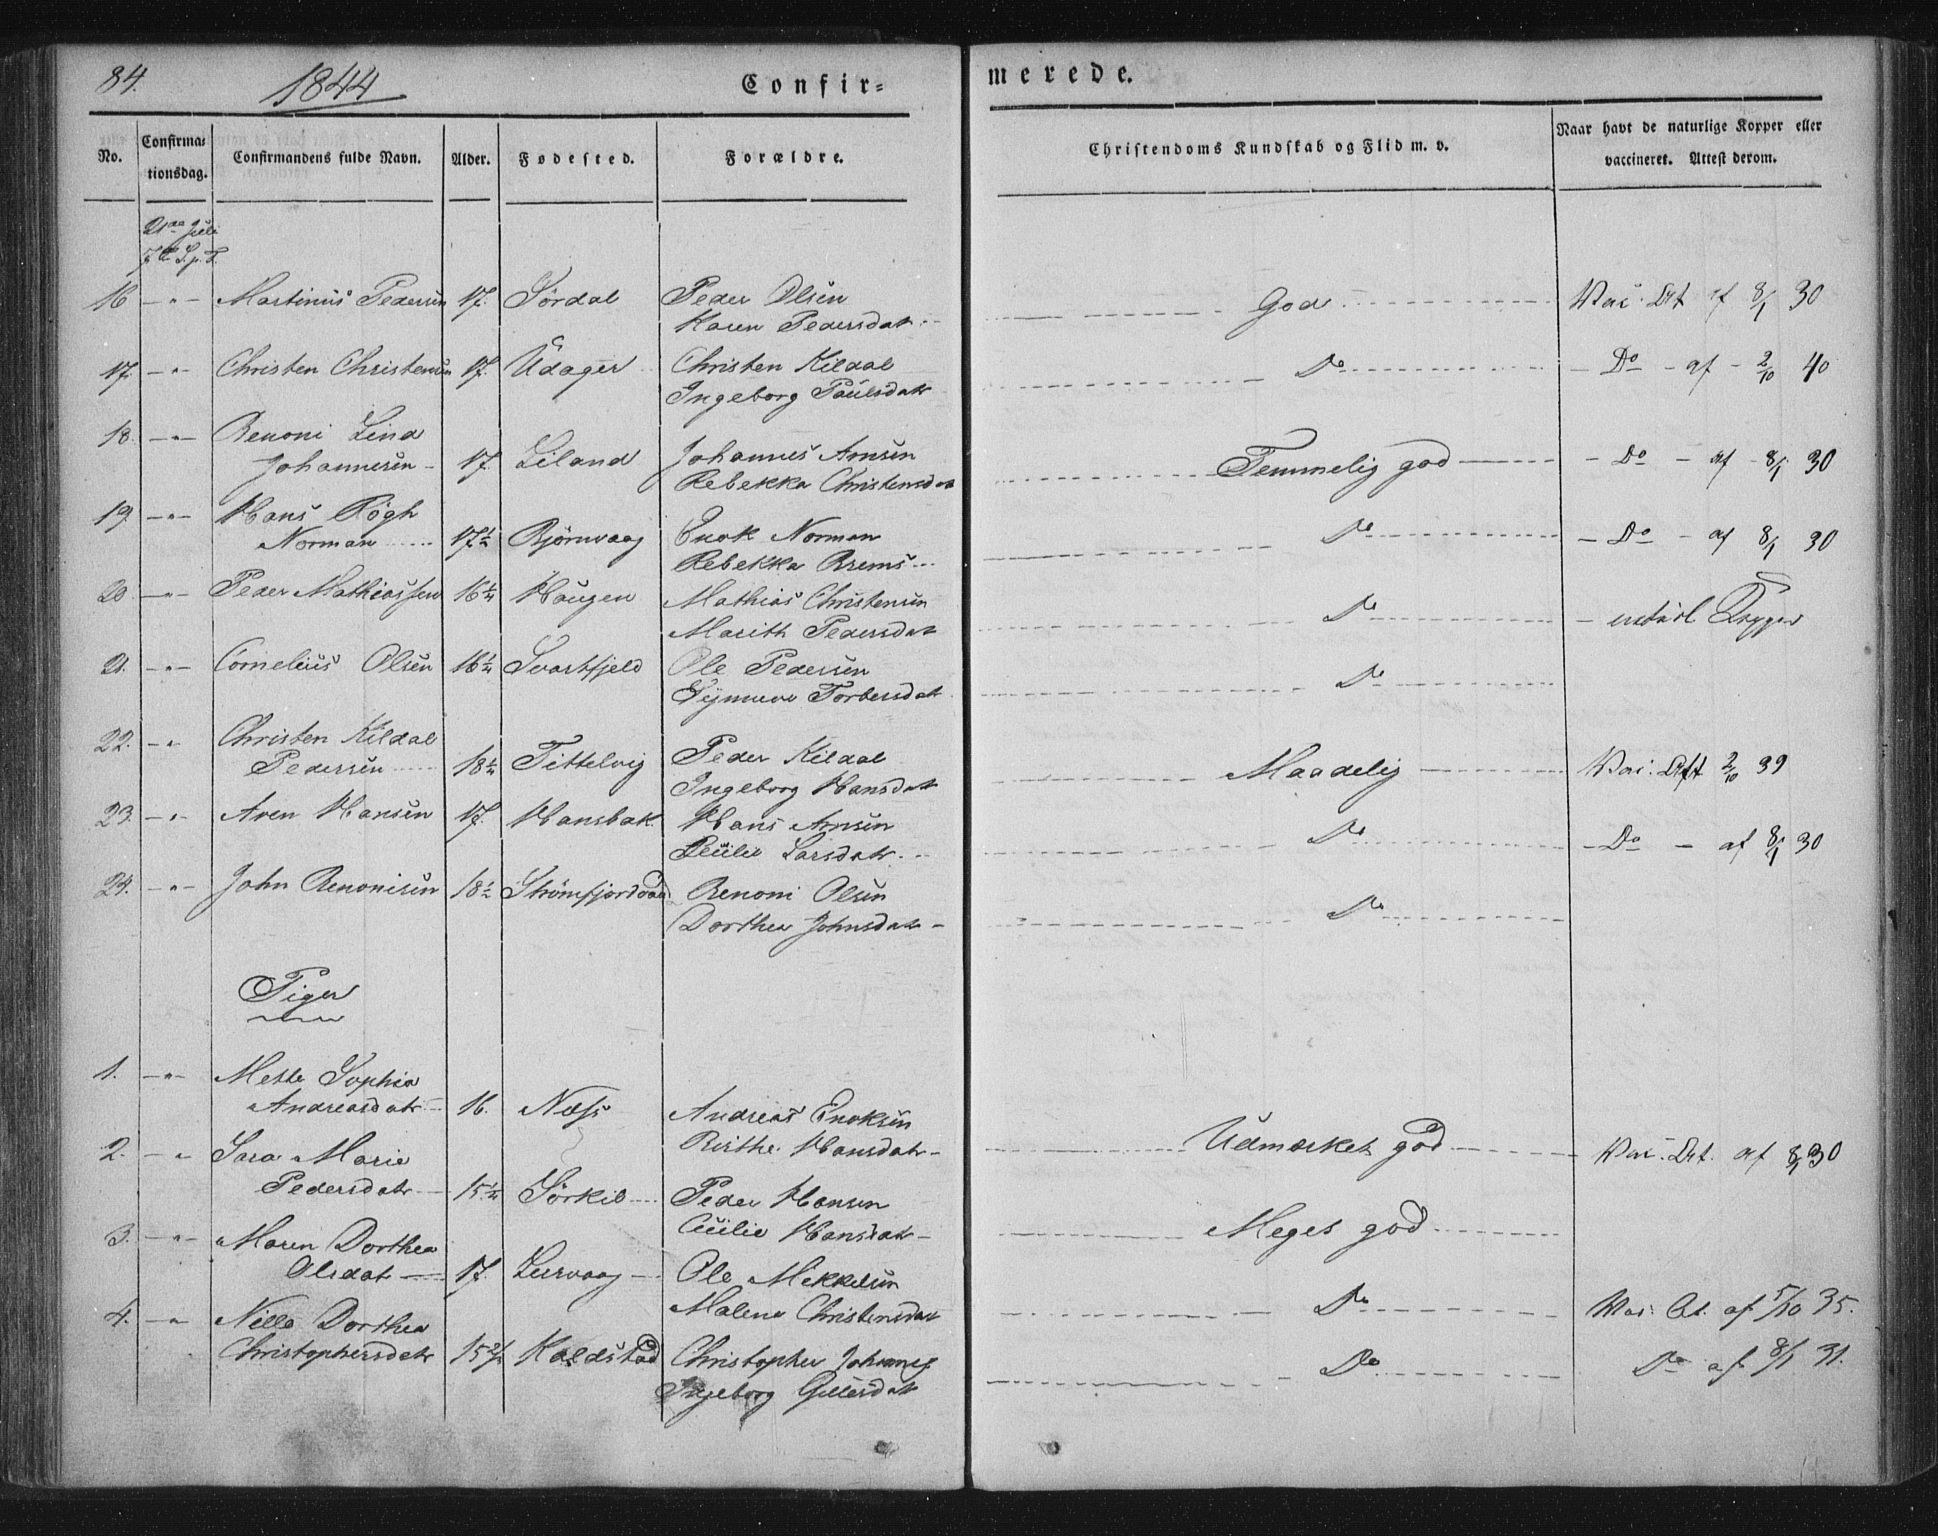 84.
1844
Confir=
merede.
No.
Confirma=
tionsdag.
Confirmandens fulde Navn.
Alder.
Fødested.
Forældre.
Christendoms Kundskab og Flid m. v.
Naar havt de naturlige Kopper eller
vaccineret. Attest derom.
21de Juli
7de S. p. T.
16 -"- Martinus Pedersen 17. Sördal Peder Olsen God Vac. Att af 8/1 30
Karen Pedersdatr
17. -"- Christen Christensen 17. Udager Christen Kildal Do - Do - af - 2/10 40
Ingeborg Paulsdatr
18. -"- Benoni Lind
Johannesen - 17. Liland Johannes Arnsen Temmelig god - Do - af 8/1 30
Rebekka Christensdat
19. -"- Hans Røgh
Norman 17½ Bjørnvaag Enok Norman Do - Do - af 8/1 30
Rebekka Brems
20 -"- Peder Mathiassen 16¼ Haugen Mathias Christensen Do - naturl Kopper
Marith Pedersdat
21. -"- Cornelius Olsen 16¼ Svartfjeld Ole Pedersen Do
Torbersdat
22. -"- Christen Kildal
Pedersen 18¼ Tittelvig Peder Kildal Maadelig Vac. Att 2/10 39
Ingeborg Hansdat
23. -"- Aren Hansen 17. Hansbak Hans Arnsen Do - Do - af 8/1 30
Larsdatr
24. -"- John Benonisen 18½ Strömfjordvaag Benoni Olsen Do
Dorthea Johnsdatr -
Piger
1. -"- Mette Sophia
Andreasdatr 16. Næss Andreas Enoksen Udmærket god Vac. Att. af 8/1 30
Birthe Hansdatr -
2. - " Sara Marie
Pedersdatr 15¼ Sörkil Peder Hansen Meget god
Cecilie Hansdatr -
3. -"- Maren Dorthea
Olsdat 17. Leervaag Ole Mekkelsen Do Vac. At. af 5/10 35.
Malena Christensdat
4. -"- Nilla Dorthea
Christophersdatr 15 Koldstad Christopher Johannes Do Do af 8/1 31.
Ingeborg